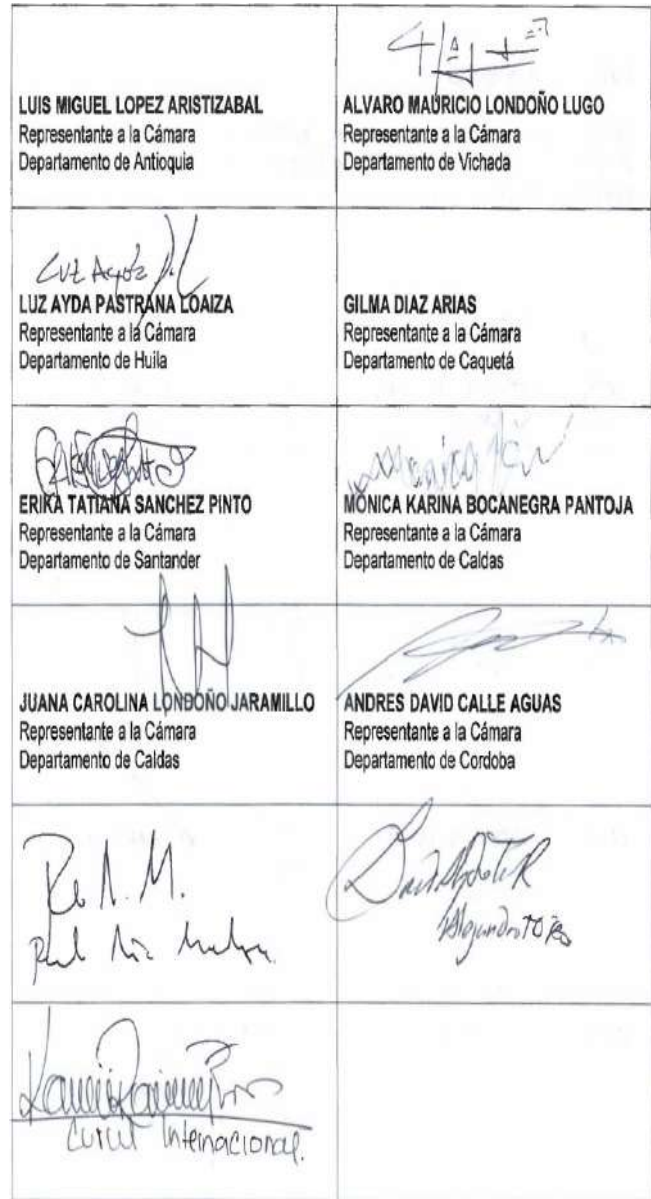 LUIS MIGUEL LOPEZ ARISTIZABAL
Representante a la Cámara
Departamento de Antioquia
ALVARO MAURICIO LONDOÑO LUGO
Representante a la Cámara
Departamento de Vichada
LUZ AYDA PASTRANA LOAIZA
Representante a la Cámara
Departamento de Huila
GILMA DIAZ ARIAS
Representante a la Cámara
Departamento de Caquetá
ERIKA TATIANA SANCHEZ PINTO
Representante a la Cámara
Departamento de Santander
MÓNICA KARINA BOCANEGRA PANTOJA
Representante a la Cámara
Departamento de Caldas
JUANA CAROLINA LONDOÑO JARAMILLO
Representante a la Cámara
Departamento de Caldas
ANDRES DAVID CALLE AGUAS
Representante a la Cámara
Departamento de Cordoba
Curul Internacional.